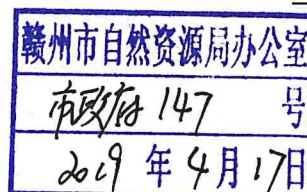 赣州市自然资源局办公室
市政府 147 号
2019 年 4 月 17 日